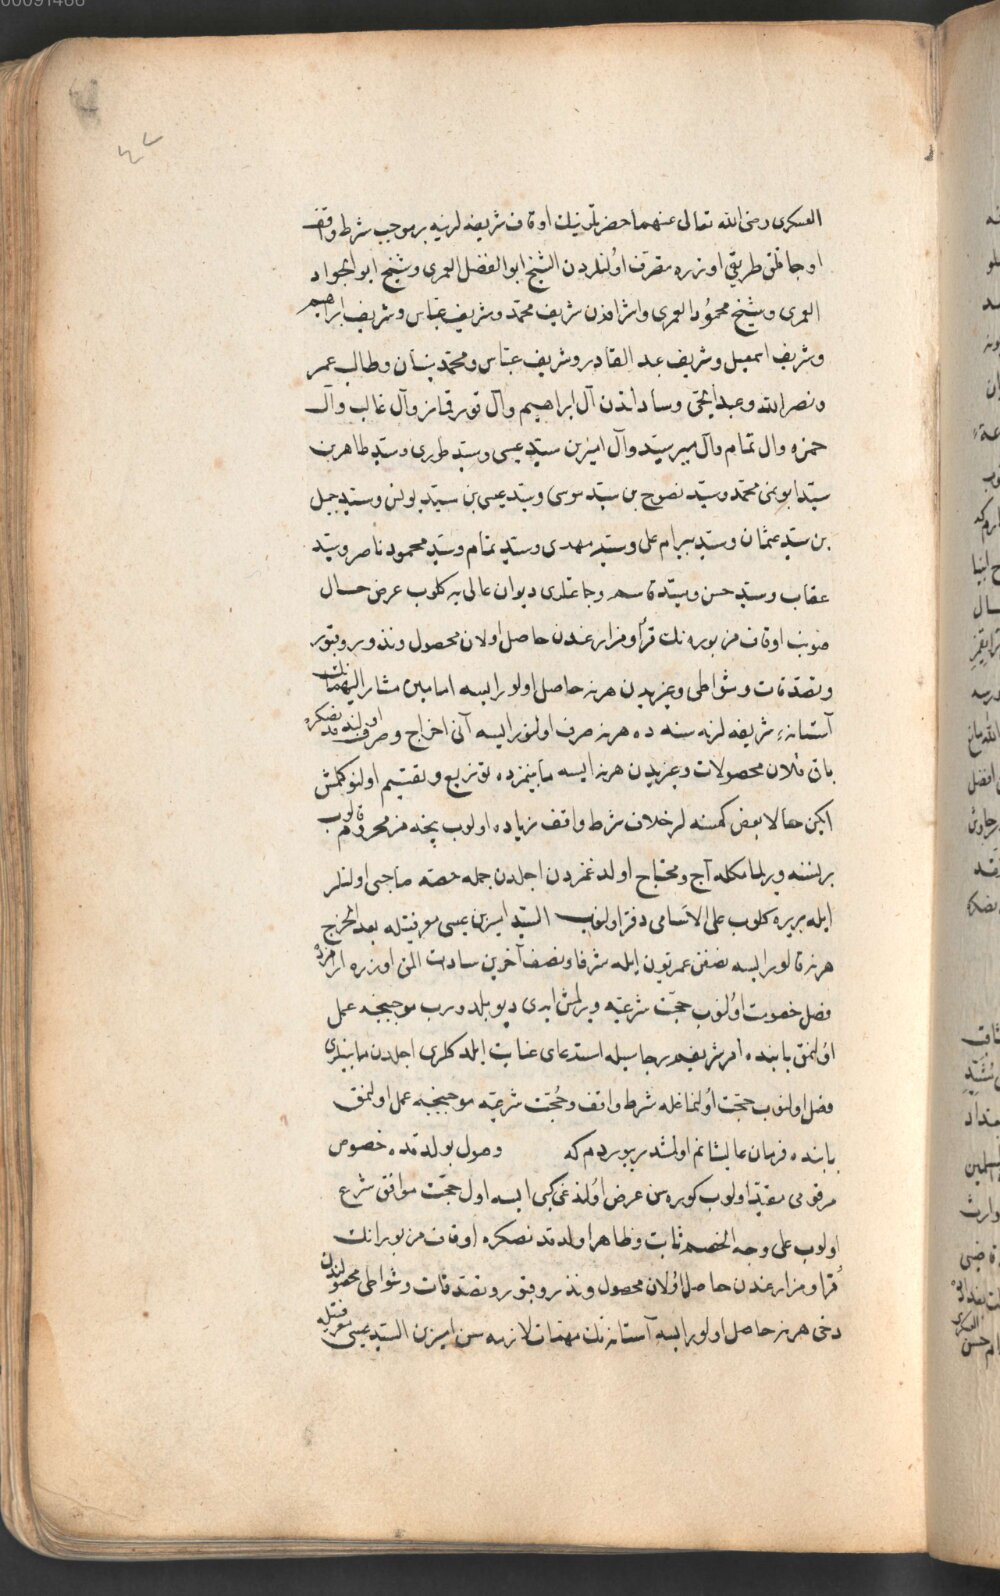 00091466
٤٧
العسكرى رضى الله تعالى عنهما حضرتلرينك اوقاف شريفه لرينه برموجب شرط واقف
اوجاقلق طريقى اوزره متصرف اولنلردن الشيخ ابو الفضل العمرى وشيخ ابو الجواد
العمرى وشيخ محمود العمرى واشرافدن شريف محمد وشريف عباس وشريف ابراهيم
وشريف اسمعيل وشريف عبد القادر وشريف عباس ومحمد وطالب عمر
ونصر الله وعبد الحى وساداتدن آل ابراهيم وآل وآل غالب وآل
حمزه وال تمام وآل مير سيد وآل اميزن سيد عيسى وسيد طورى وسيد طاهر بن
سيد ابو نمى محمد وسيد نصوح بن سيد موسى وسيد عيسى بن سيد يولن وسيد جبل
بن سيد عثمان وسيد بيرام على وسيد مهدى وسيد تمام وسيد محمود ناصر وسيد
عقاب وسيد حسن وسيد قاسم وجماعتلرى ديوان عالى يه كلوب عرض حال
صونوب اوقاف مزبوره نك قرا ومزارعندن حاصل اولان محصول ونذور وقبور
وتصدقات وشواطى وغيريدن هرنه حاصل اولور ايسه امامين مشار اليهمانك
آستانهء شريفه لرنه سنه ده هرنه صرف اولنور ايسه آنى اخراج وصرف اولندقدنصكره
باقى قلان محصولات وغيريدن هرنه ايسه مابينمزده توزيع وتقسيم اولنوكلمش
ايكن حالا بعض كمسنه لر خلاف شرط واقف زياده اولوب نيچه مز محروم قالوب
برنسنه ويرلمامكله آج ومحتاج اولدغمزدن اجلدن جمله حصه صاحبى اولنلر
ايله بريره كلوب على الاسامى دفتر اولنوب السيد اميزن عيسى معرفتيله بعد الخرج
هرنه قالور ايسه نصفن عمريون ايله شرفا ونصف آخرين سادات المق اوزره
فصل خصومت اولنوب حجت شرعيه ويرلمش ايدى ديو بلدروب موجبنجه عمل
اولنمق بابنده امر شريفم رجاسيله استدعاى عنايت ايلدكلرى اجلدن مابينلرى
فصل اولنوب حجت اولنماغله شرط واقف وحجت شرعيه موجبنجه عمل اولنمق
بابنده فرمان عاليشانم اولمشدر بيوردم كه وصول بولدقده خصوص
مرقومى مقيد اولوب كوره سن عرض اولندغى كبى ايسه اول حجت موافق شرع
اولوب على وجه الخصم ثابت وظاهر اولدقدنصكره اوقاف مزبورانك
قرا ومزارعندن حاصل اولان محصول ونذر وقبور وتصدقات وشواطى محصولندن
دخى هرنه حاصل اولور ايسه آستانه نك مهمات لازمه سن اميزن السيد عيسى معرفتيله